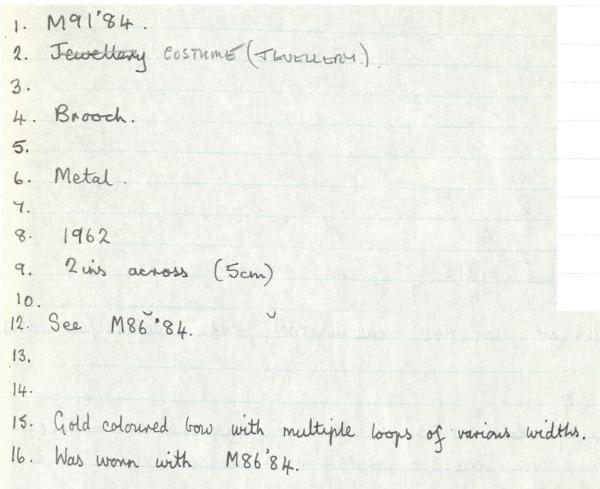 1. M91'84.
2. Jewellery COSTUME (JEWELLERY.)
3.
4. Brooch.
5.
6. Metal.
7.
8. 1962
9. 2ins across (5cm)
10.
12. See M86'84.
13.
14.
15. Gold coloured bow with multiple loops of various widths.
16. Was worn with M86'84.